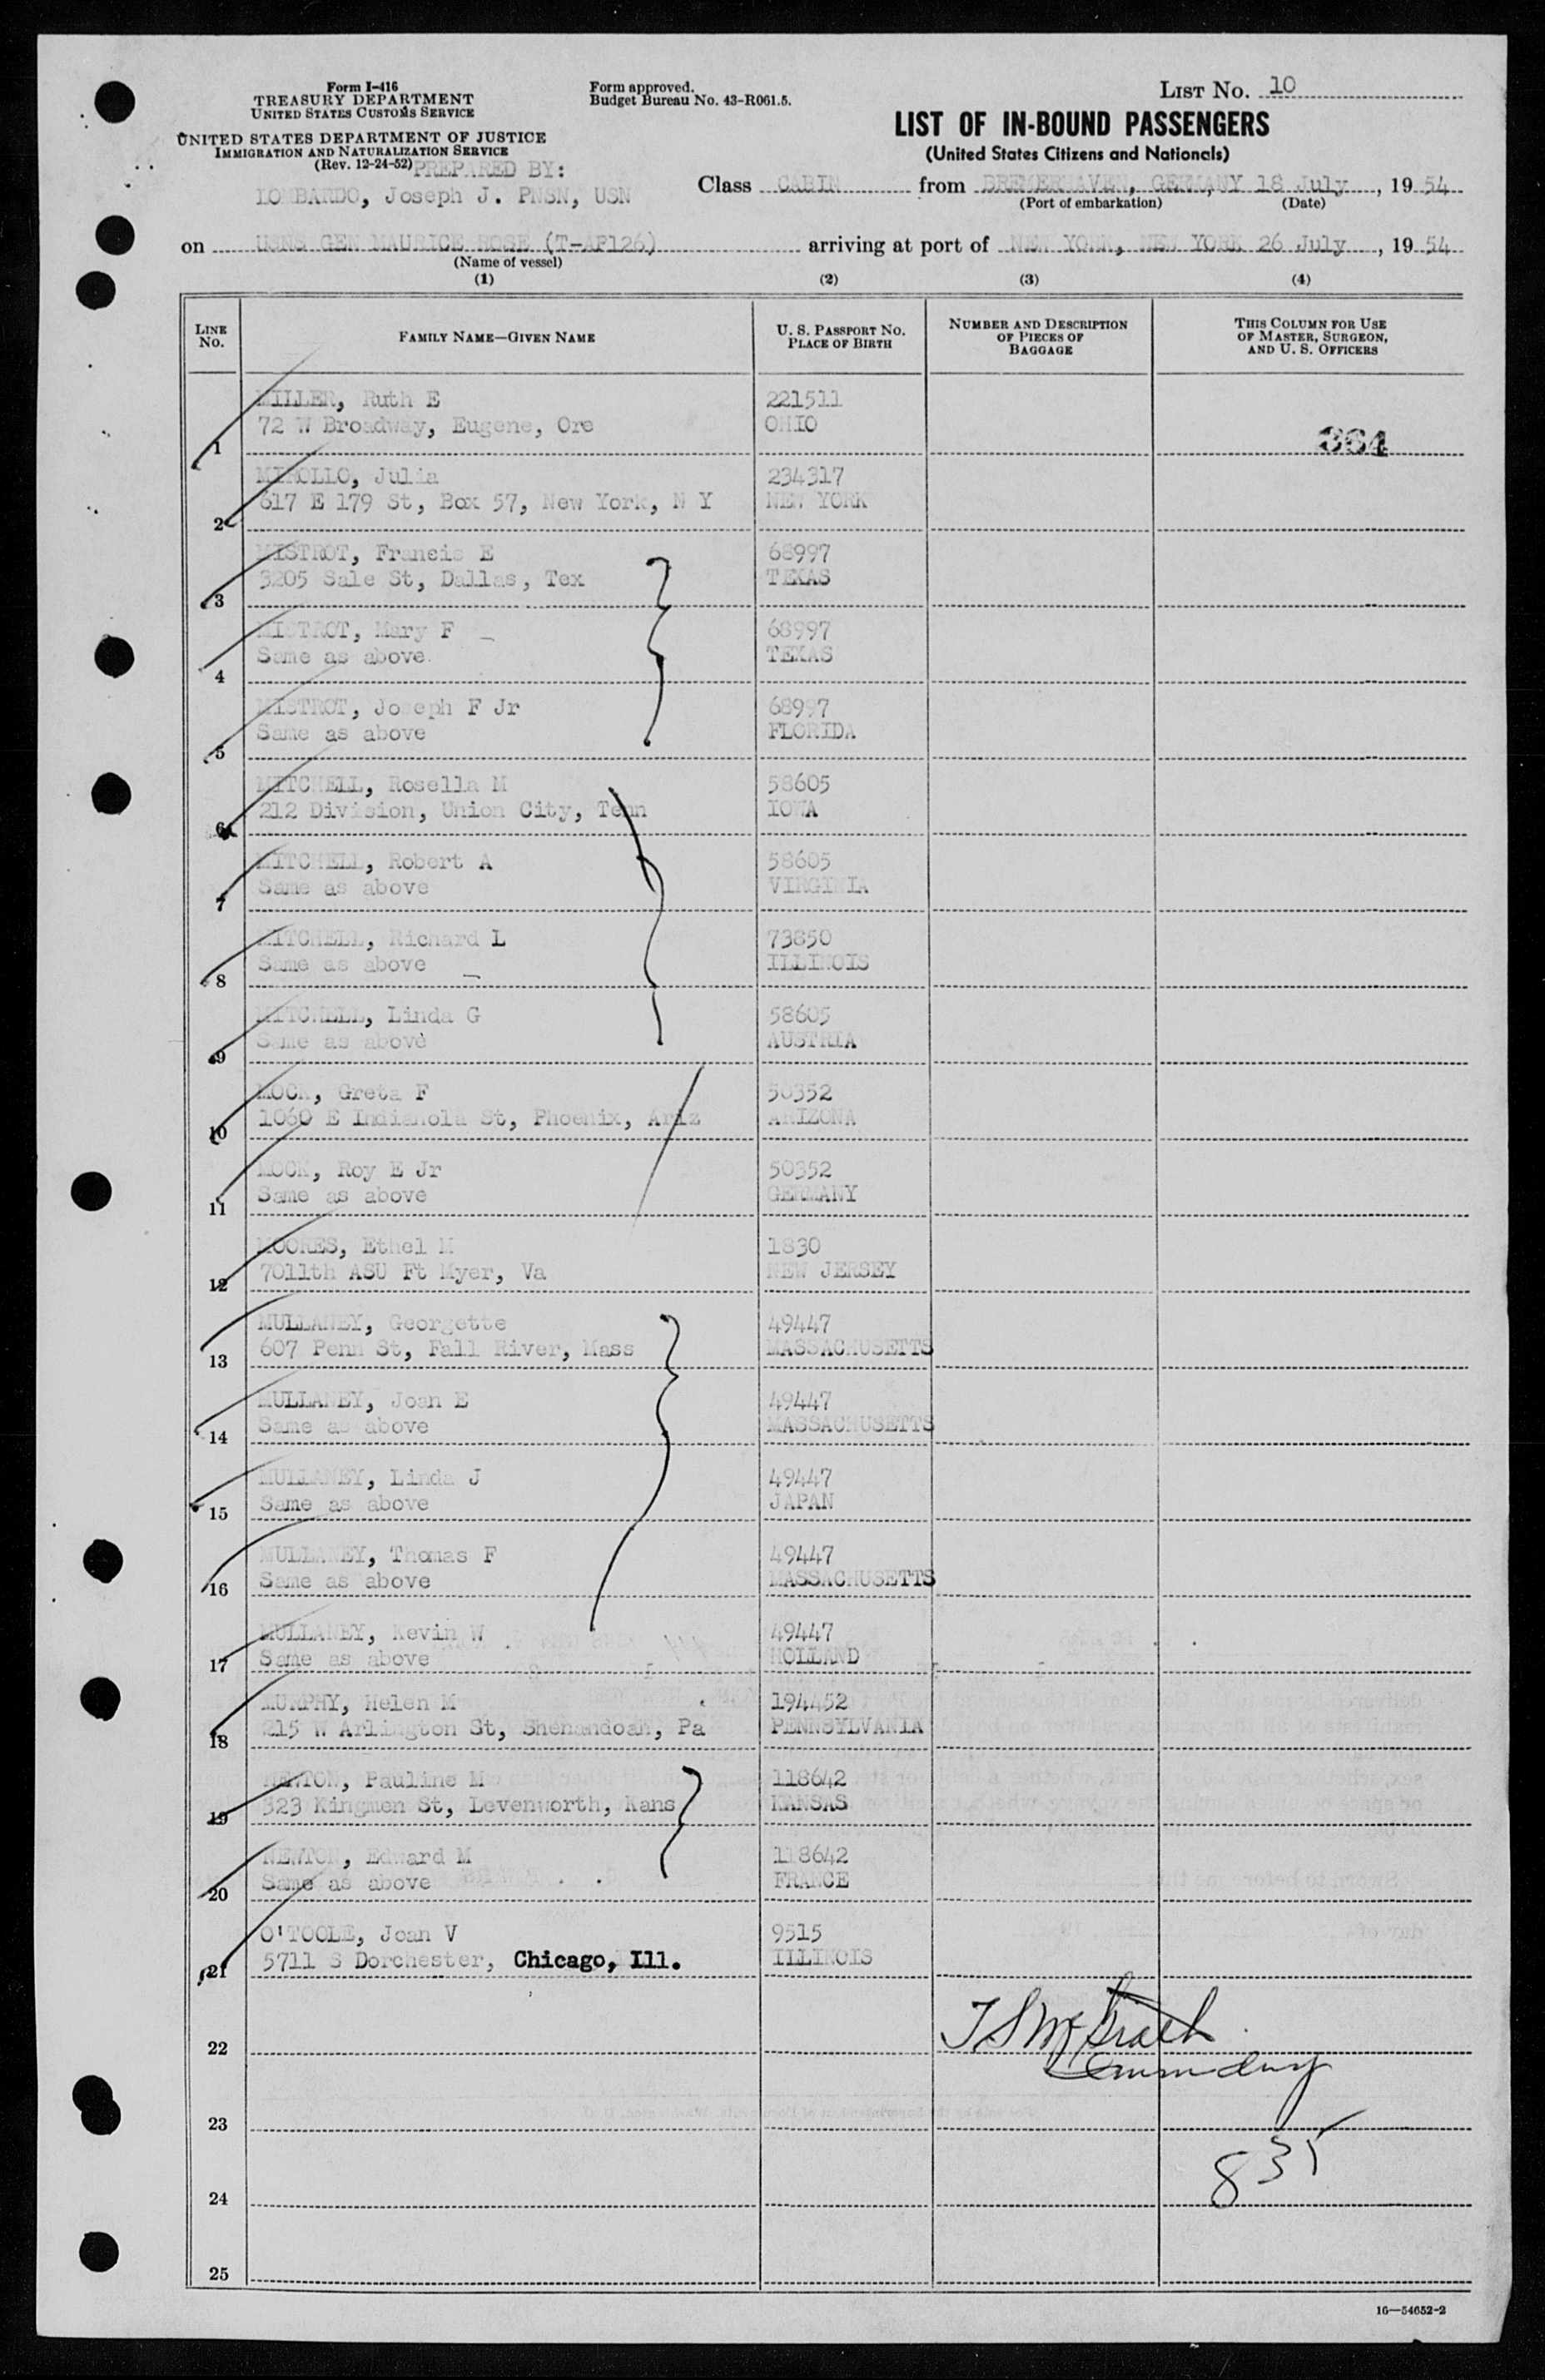 Form I-416
TREASURY DEPARTMENT
UNITED STATES CUSTOMS SERVICE
UNITED STATES DEPARTMENT OF JUSTICE
IMMIGRATION AND NATURALIZATION SERVICE
(Rev. 12-24-52) PREPARED BY:
LOMBARDO, Joseph J. PNSN, USN
Form approved.
Budget Bureau No. 43-R061.5.
LIST NO. 10
LIST OF IN-BOUND PASSENGERS
(United States Citizens and Nationals)
Class CABIN from BREMERHAVEN, GERMANY 18 July, 1954
(Port of embarkation) (Date)
on USNS GEN MAURICE ROSE (T-AP126) arriving at port of NEW YORK, NEW YORK 26 July, 1954
(Name of vessel)
(1) (2) (3) (4)
LINE NO. FAMILY NAME—GIVEN NAME U. S. PASSPORT NO. PLACE OF BIRTH NUMBER AND DESCRIPTION OF PIECES OF BAGGAGE THIS COLUMN FOR USE OF MASTER, SURGEON, AND U. S. OFFICERS
MILLER, Ruth E 221511
1 72 W Broadway, Eugene, Ore OHIO 364
MIROLLO, Julia 234317
2 617 E 179 St, Box 57, New York, N Y NEW YORK
MISTROT, Francis E 68997
3 3205 Sale St, Dallas, Tex TEXAS
MISTROT, Mary F 68997
4 Same as above TEXAS
MISTROT, Joseph F Jr 68997
5 Same as above FLORIDA
MITCHELL, Rosella M 58605
6 212 Division, Union City, Tenn IOWA
MITCHELL, Robert A 58605
7 Same as above VIRGINIA
MITCHELL, Richard L 73850
8 Same as above ILLINOIS
MITCHELL, Linda G 58605
9 Same as above AUSTRIA
MOCK, Greta F 50352
10 1060 E Indianola St, Phoenix, Ariz ARIZONA
MOCK, Roy E Jr 50352
11 Same as above GERMANY
MOORES, Ethel M 1830
12 7011th ASU Ft Myer, Va NEW JERSEY
MULLANEY, Georgette 49447
13 607 Penn St, Fall River, Mass MASSACHUSETTS
MULLANEY, Joan E 49447
14 Same as above MASSACHUSETTS
MULLANEY, Linda J 49447
15 Same as above JAPAN
MULLANEY, Thomas F 49447
16 Same as above MASSACHUSETTS
MULLANEY, Kevin W 49447
17 Same as above HOLLAND
MURPHY, Helen M 194452
18 215 W Arlington St, Shenandoah, Pa PENNSYLVANIA
NEWTON, Pauline M 118642
19 323 Kingmen St, Levenworth, Kans KANSAS
NEWTON, Edward M 118642
20 Same as above FRANCE
O'TOOLE, Joan V 9515
21 5711 S Dorchester, Chicago, Ill. ILLINOIS
22 T S McGrath
23
835
24
25
16—54652-2